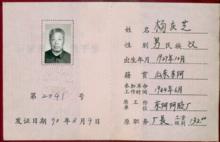 姓名 杨兵芝
性别 男 民族 汉
出生年月 1927年10月
籍贯 山东东阿
参加革命工作时间 1944年6月
原工作单位 东阿阿胶厂
原职务 厂长
第 2041 号
发证日期 90年2月9日